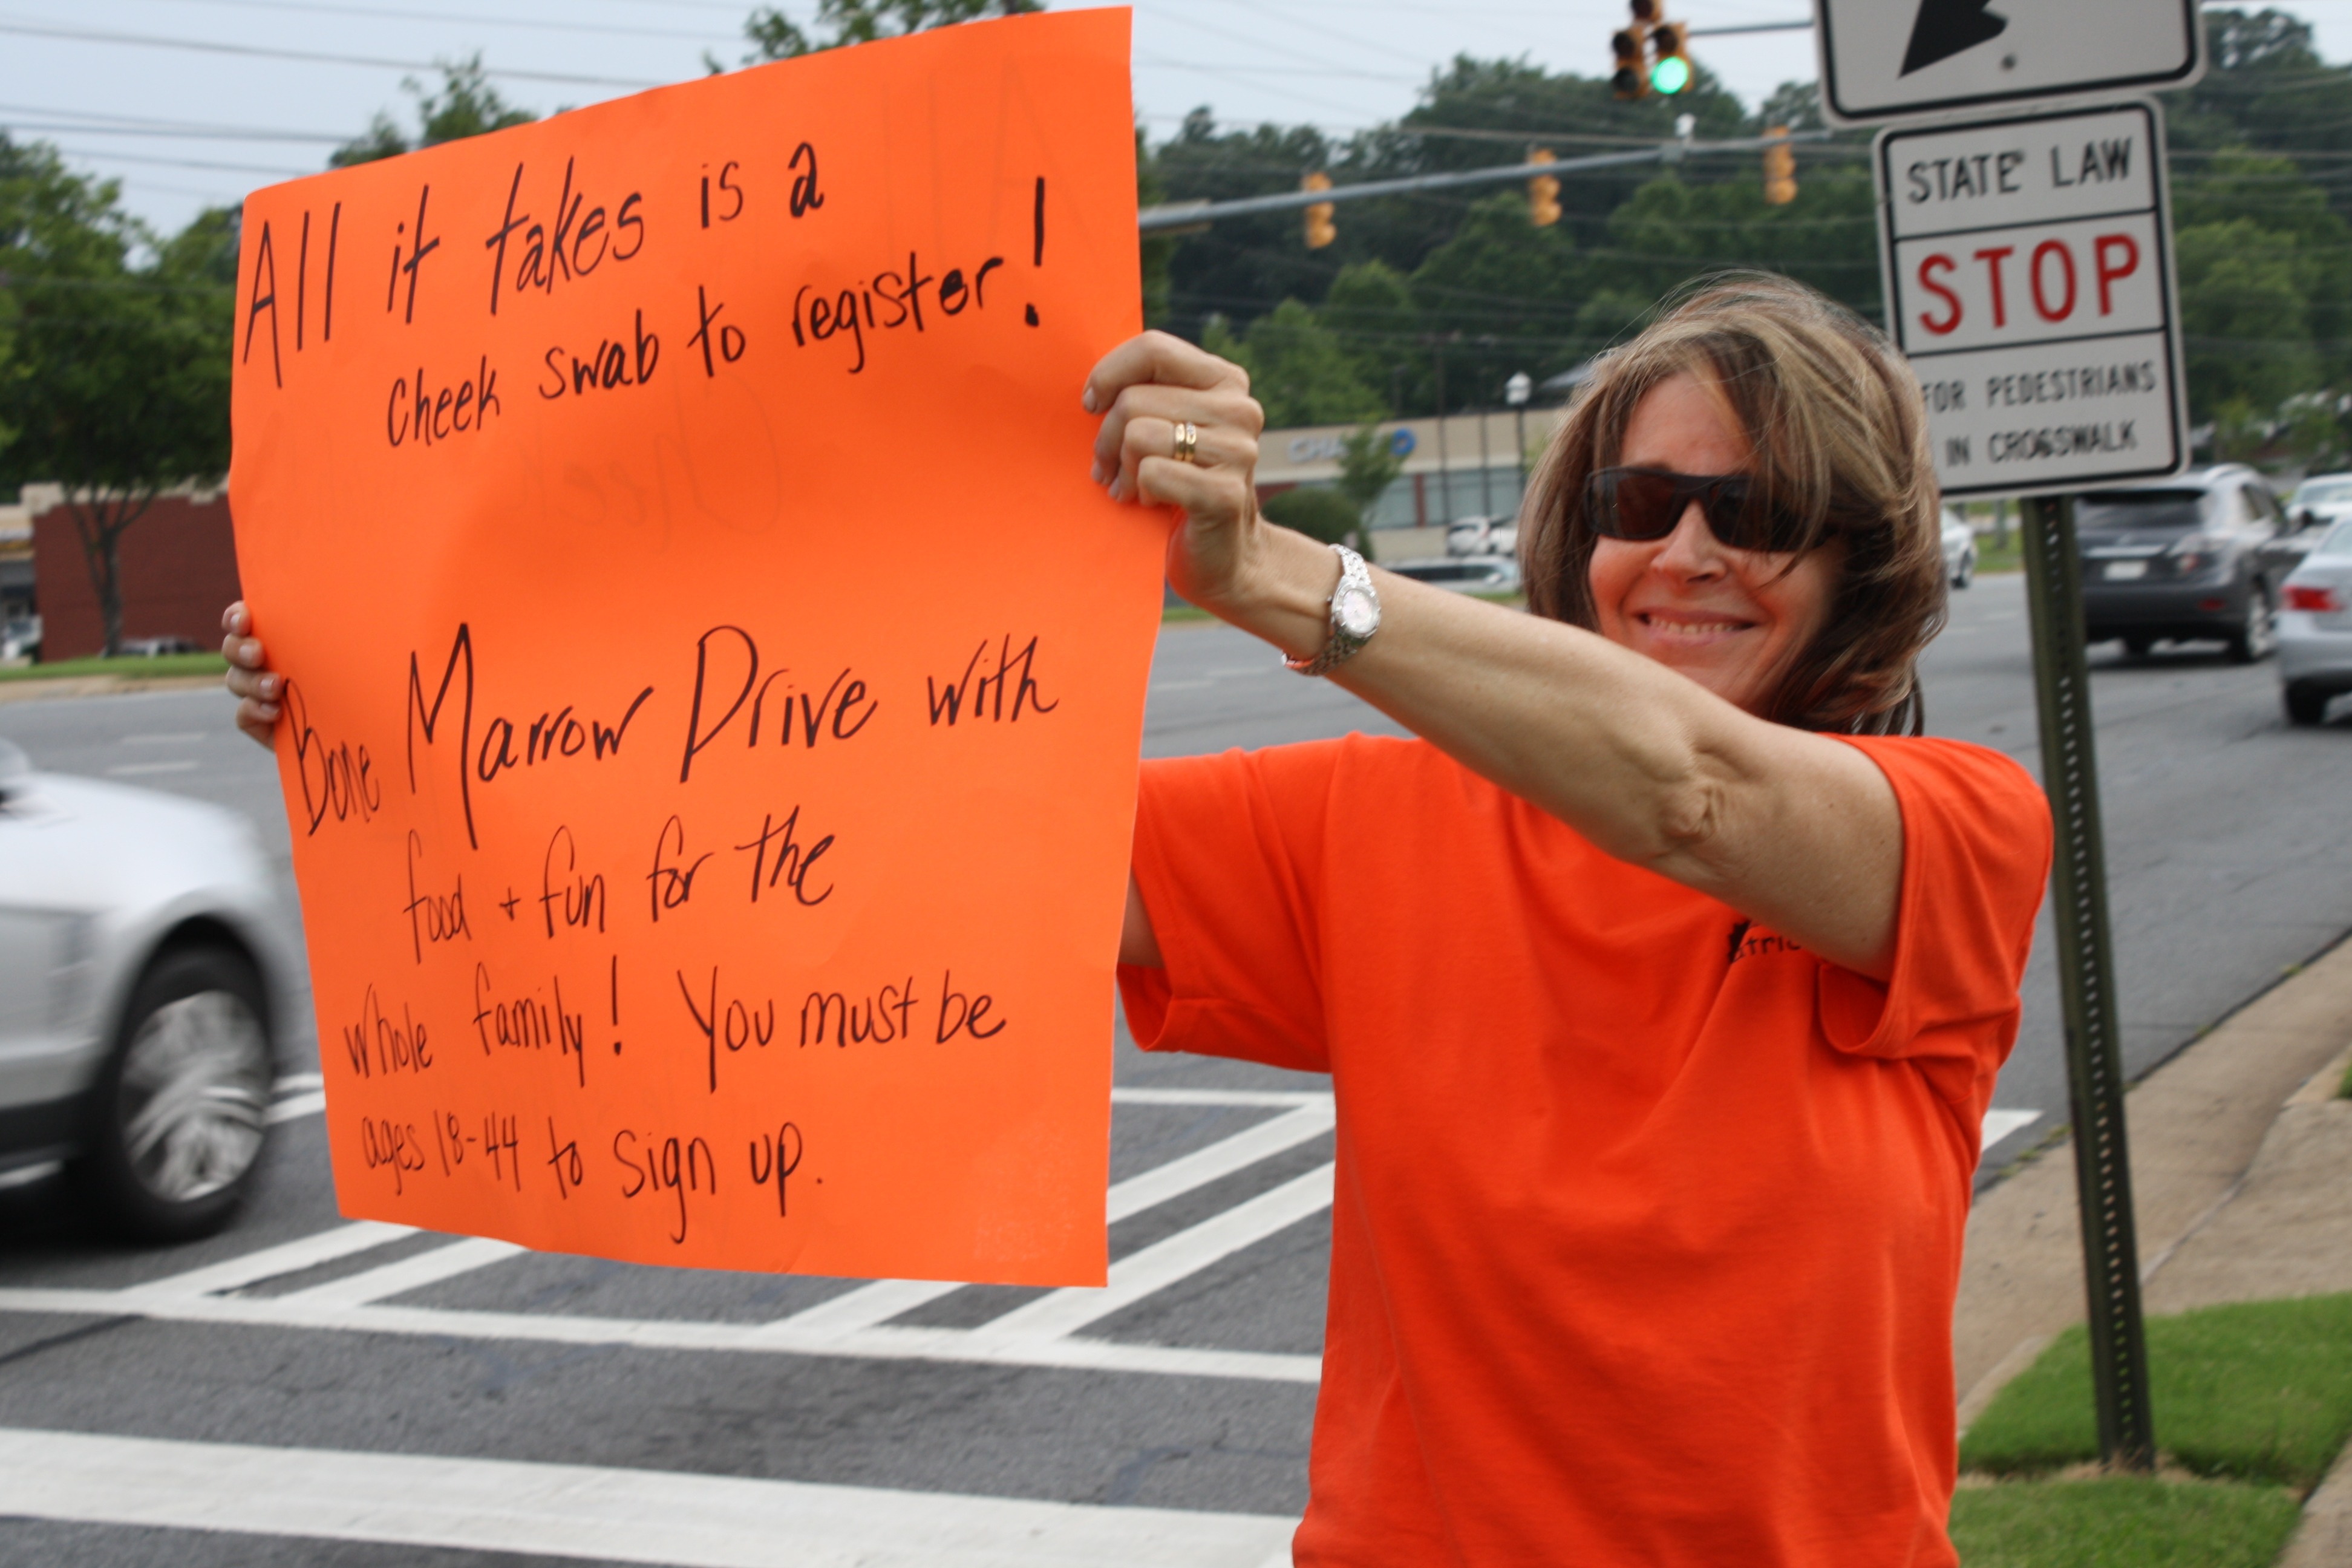 All it takes is a
cheek swab to register!
Bone Marrow Drive with
food + fun for the
whole family! You must be
ages 18-44 to sign up.
STATE LAW
STOP
FOR PEDESTRIANS
IN CROSSWALK